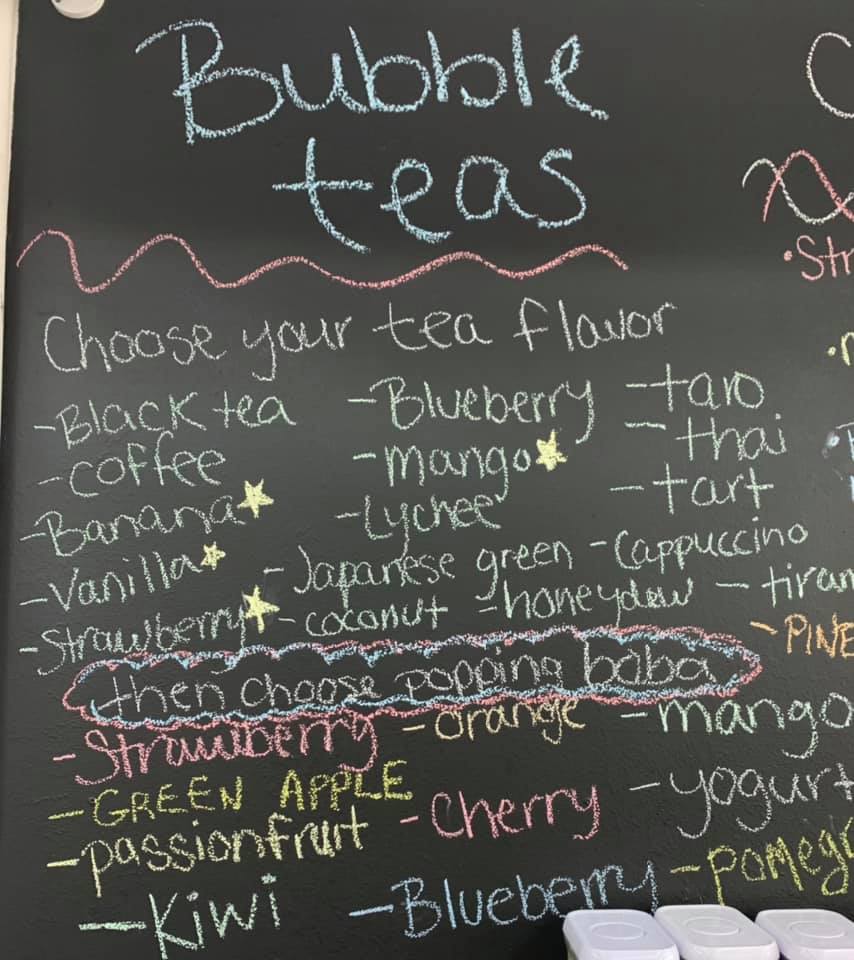 Bubble
teas
Choose your tea flavor
-Black tea -Blueberry -taro
-coffee -mango -thai
-Banana -Lychee -tart
-Vanilla -Japanese green -Cappuccino
-Strawberry -coconut -honeydew -tiram
-PINE
then choose popping boba
-Strawberry -orange -mango
-GREEN APPLE -Cherry -yogurt
-passionfruit
-Kiwi -Blueberry -pomegr
•Str